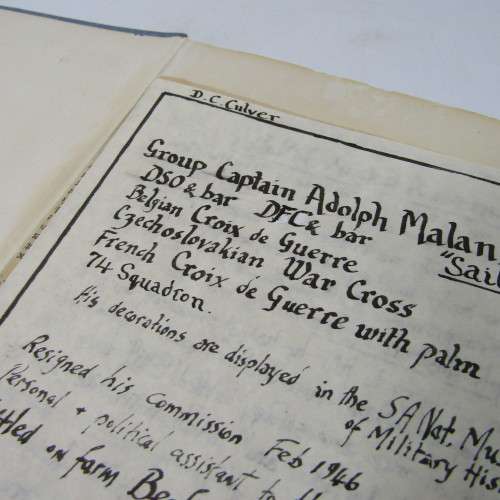 D. C. Culver
Group Captain Adolph Malan,
DSO & bar DFC & bar "Sail
Belgian Croix de Guerre
Czechoslovakian War Cross
French Croix de Guerre with palm
74 Squadron.
His decorations are displayed in the SA Nat. Mus
of Military His
Resigned his Commission Feb 1946
Personal + political assistant to
on farm